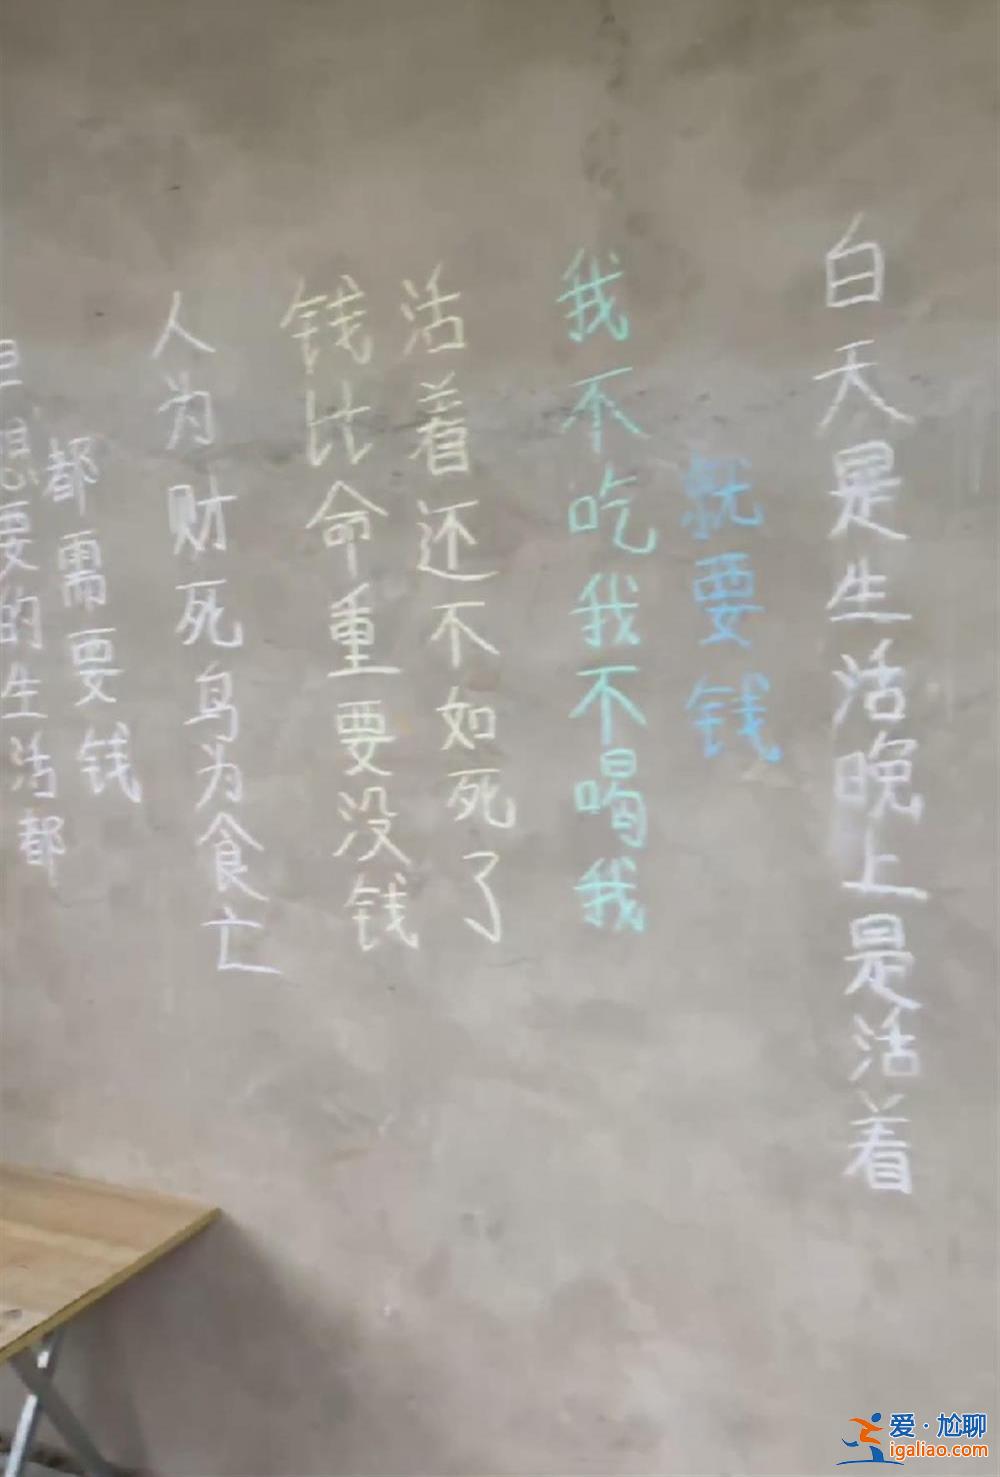 想要的生活都
都需要钱
人为财死鸟为食亡
钱比命重要没钱
活着还不如死了
我不吃我不喝我
就要钱
白天是生活晚上是活着
爱·尬聊
igaliao.com